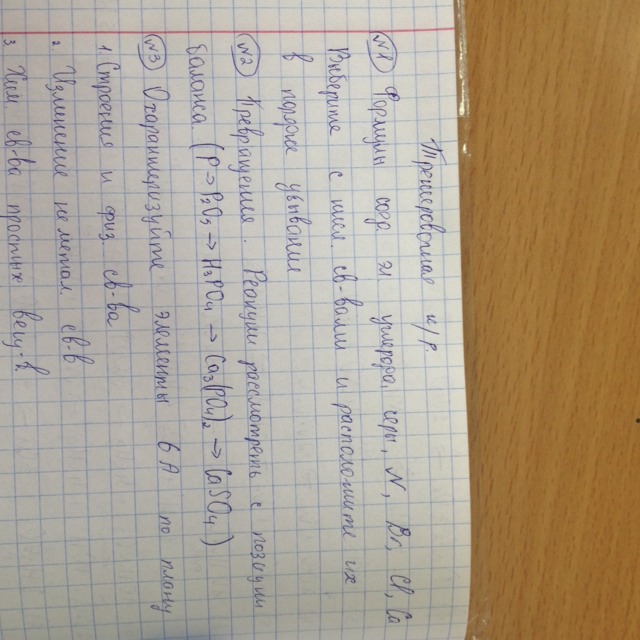 Тренировочная к/р.
№1 Формулы соед эл углерода, серы, N, Br, Cl, Ca
Выберите с кисл. св-вами и расположите их
в порядке убывания
№2 Превращения. Реакции рассмотреть с позиции
баланса (P → P₂O₅ → H₃PO₄ → Ca₃(PO₄)₂ → CaSO₄)
№3 Охарактеризуйте элементы 6A по плану
1. Строение и физ. св-ва
2. Изменение неметал. св-в
3. Хим св-ва простых вещ-в